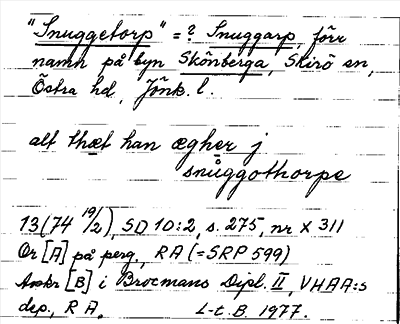 "Snuggetorp" = ? Snuggarp, förr
namn på byn Skönberga, Skirö sn,
Östra hd, Jönk. l.
alt thæt han ægher j
snuggothorpe
13(74 19/2), SD 10:2, s. 275, nr X 311
Or [A] på perg., RA (=SRP 599)
Avskr [B] i Brocmans Dipl. II, VHAA:s
dep., RA.
L-t. B. 1977.